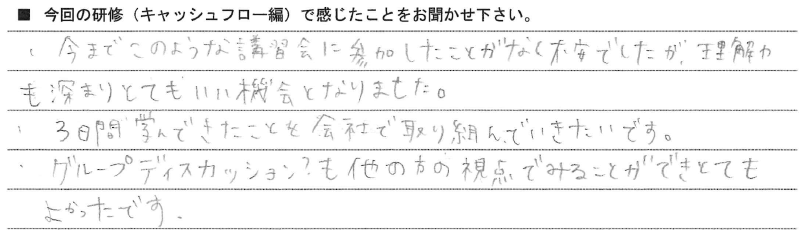 ■ 今回の研修（キャッシュフロー編）で感じたことをお聞かせ下さい。
・ 今までこのような講習会に参加したことがなく不安でしたが、理解力
も深まりとてもいい機会となりました。
・ 3日間学んできたことを会社で取り組んでいきたいです。
・ グループディスカッション?も他の方の視点でみることができとても
よかったです.